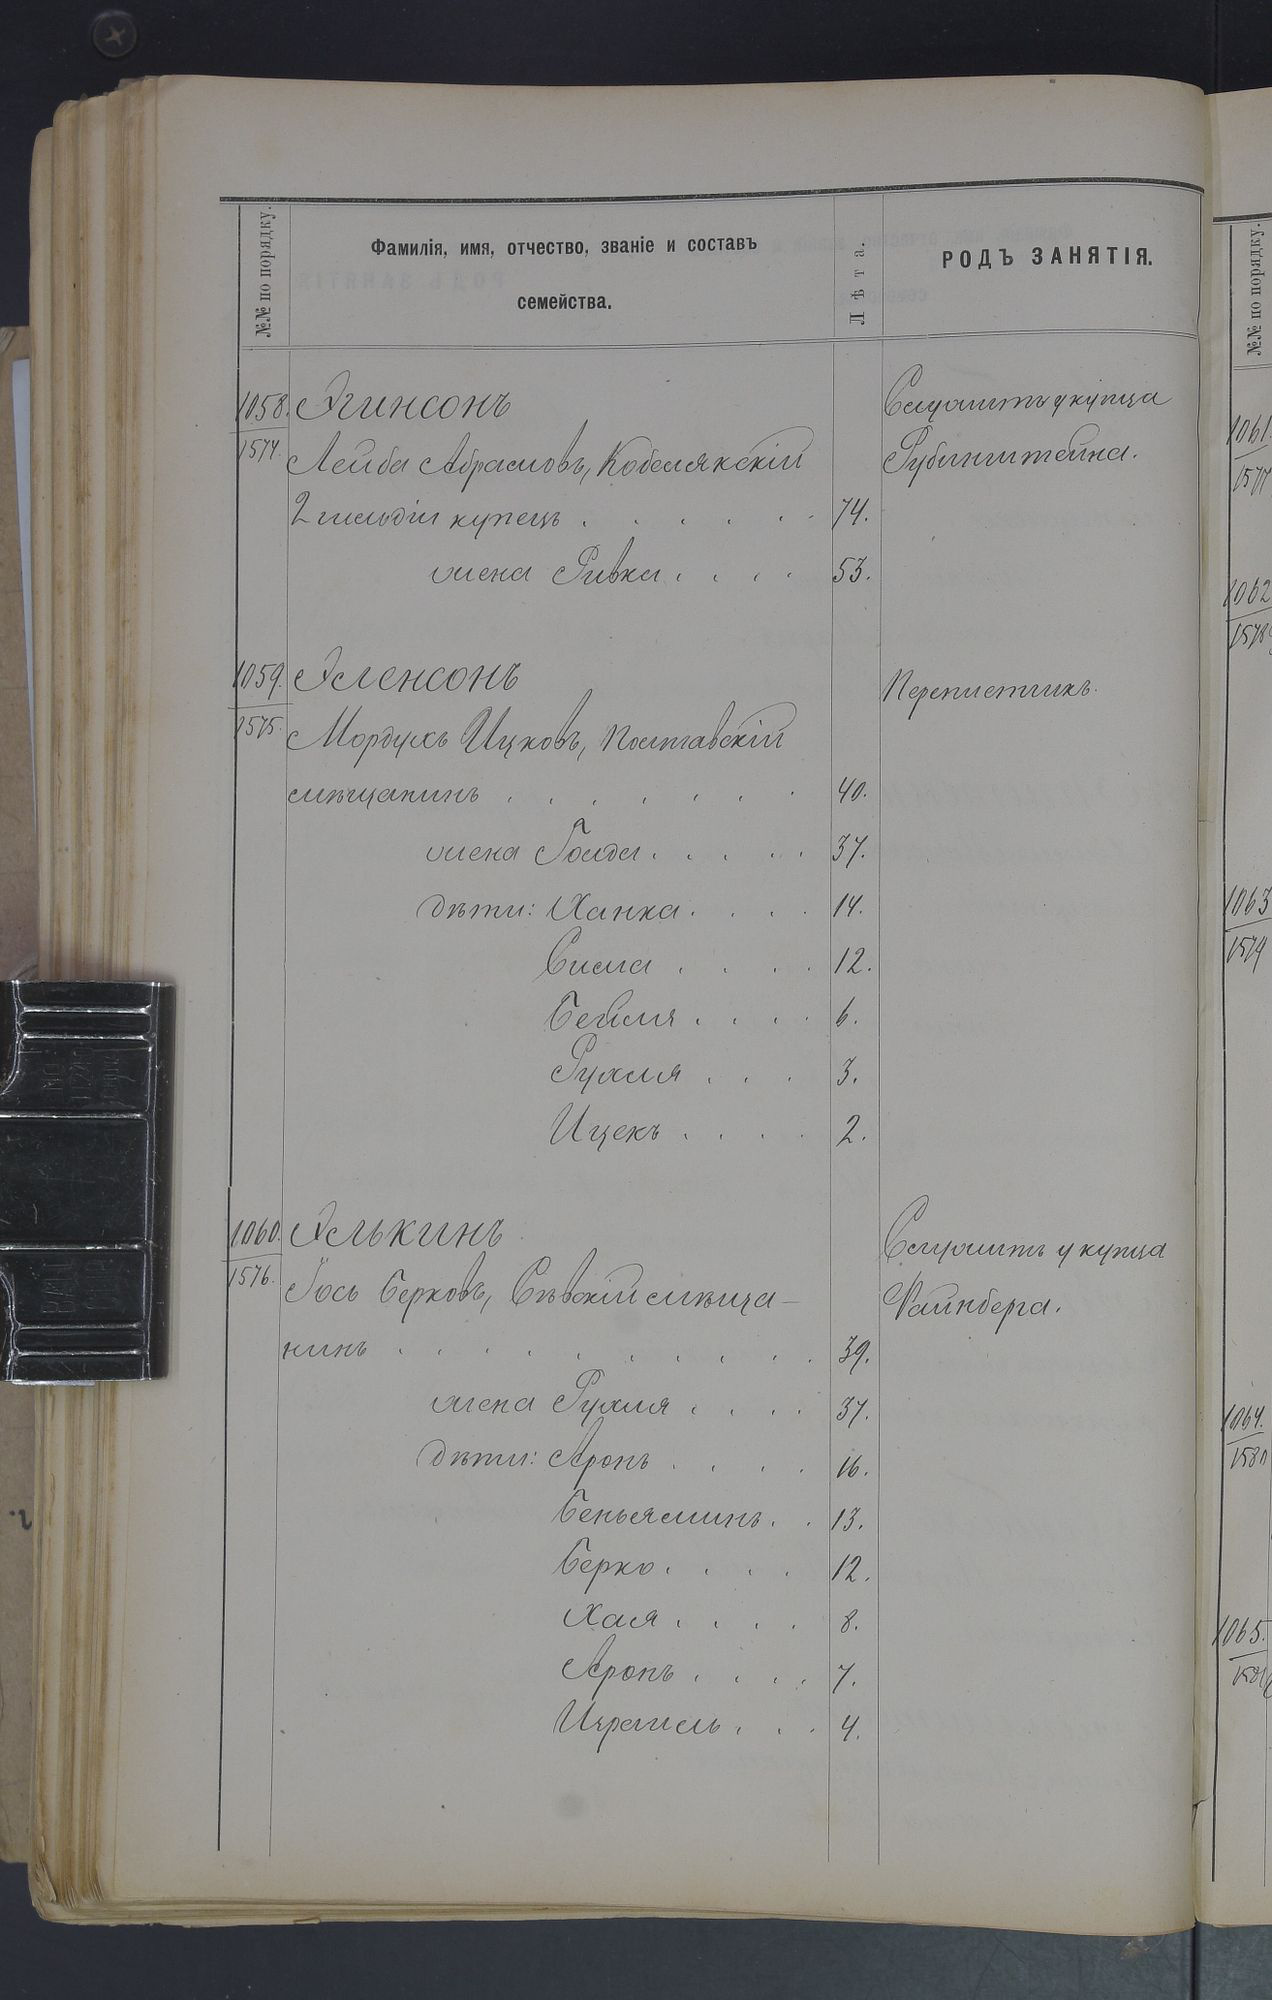 №№ по порядку.
Фамилія, имя, отчество, званіе и составъ
семейства.
Лѣта.
РОДЪ ЗАНЯТІЯ.
1058. Эгинсонъ
Служитъ у купца
1574. Лейба Абрамовъ, Кобелякскій
Рубинштейна.
2 гильдіи купецъ . . . . . . 74.
жена Ривка . . . . 53.
1059. Эленсонъ
Переписчикъ.
1575. Мордухъ Ицковъ, Полтавскій
мѣщанинъ . . . . . . . 40.
жена Голда . . . . . 37.
дѣти: Ханка . . . . 14.
Сима . . . . 12.
Бейля . . . . 6.
Рухля . . . 3.
Ицекъ . . . . 2.
1060. Элькинъ
Служитъ у купца
1576. Іось Берковъ, Сѣвскій мѣща-
Файнберга.
нинъ . . . . . . . . . . 39.
жена Рухля . . . . 37.
дѣти: Аронъ . . . . 16.
Беньяминъ . . 13.
Берко . . . . 12.
Хая . . . . 8.
Аронъ . . . . 7.
Израиль . . . 4.
№№ по порядку.
1061.
1577
1062
1578
1063
1579
1064.
1580
1065.